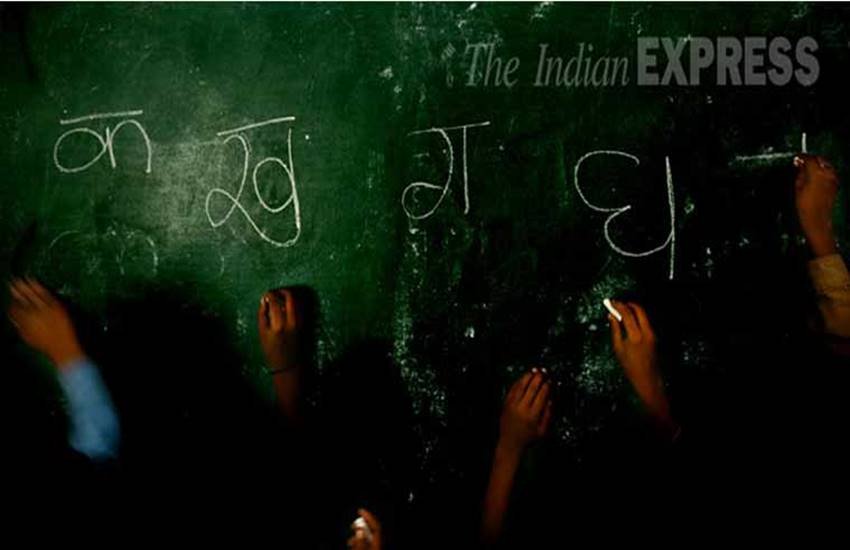 The Indian EXPRESS
क ख ग घ